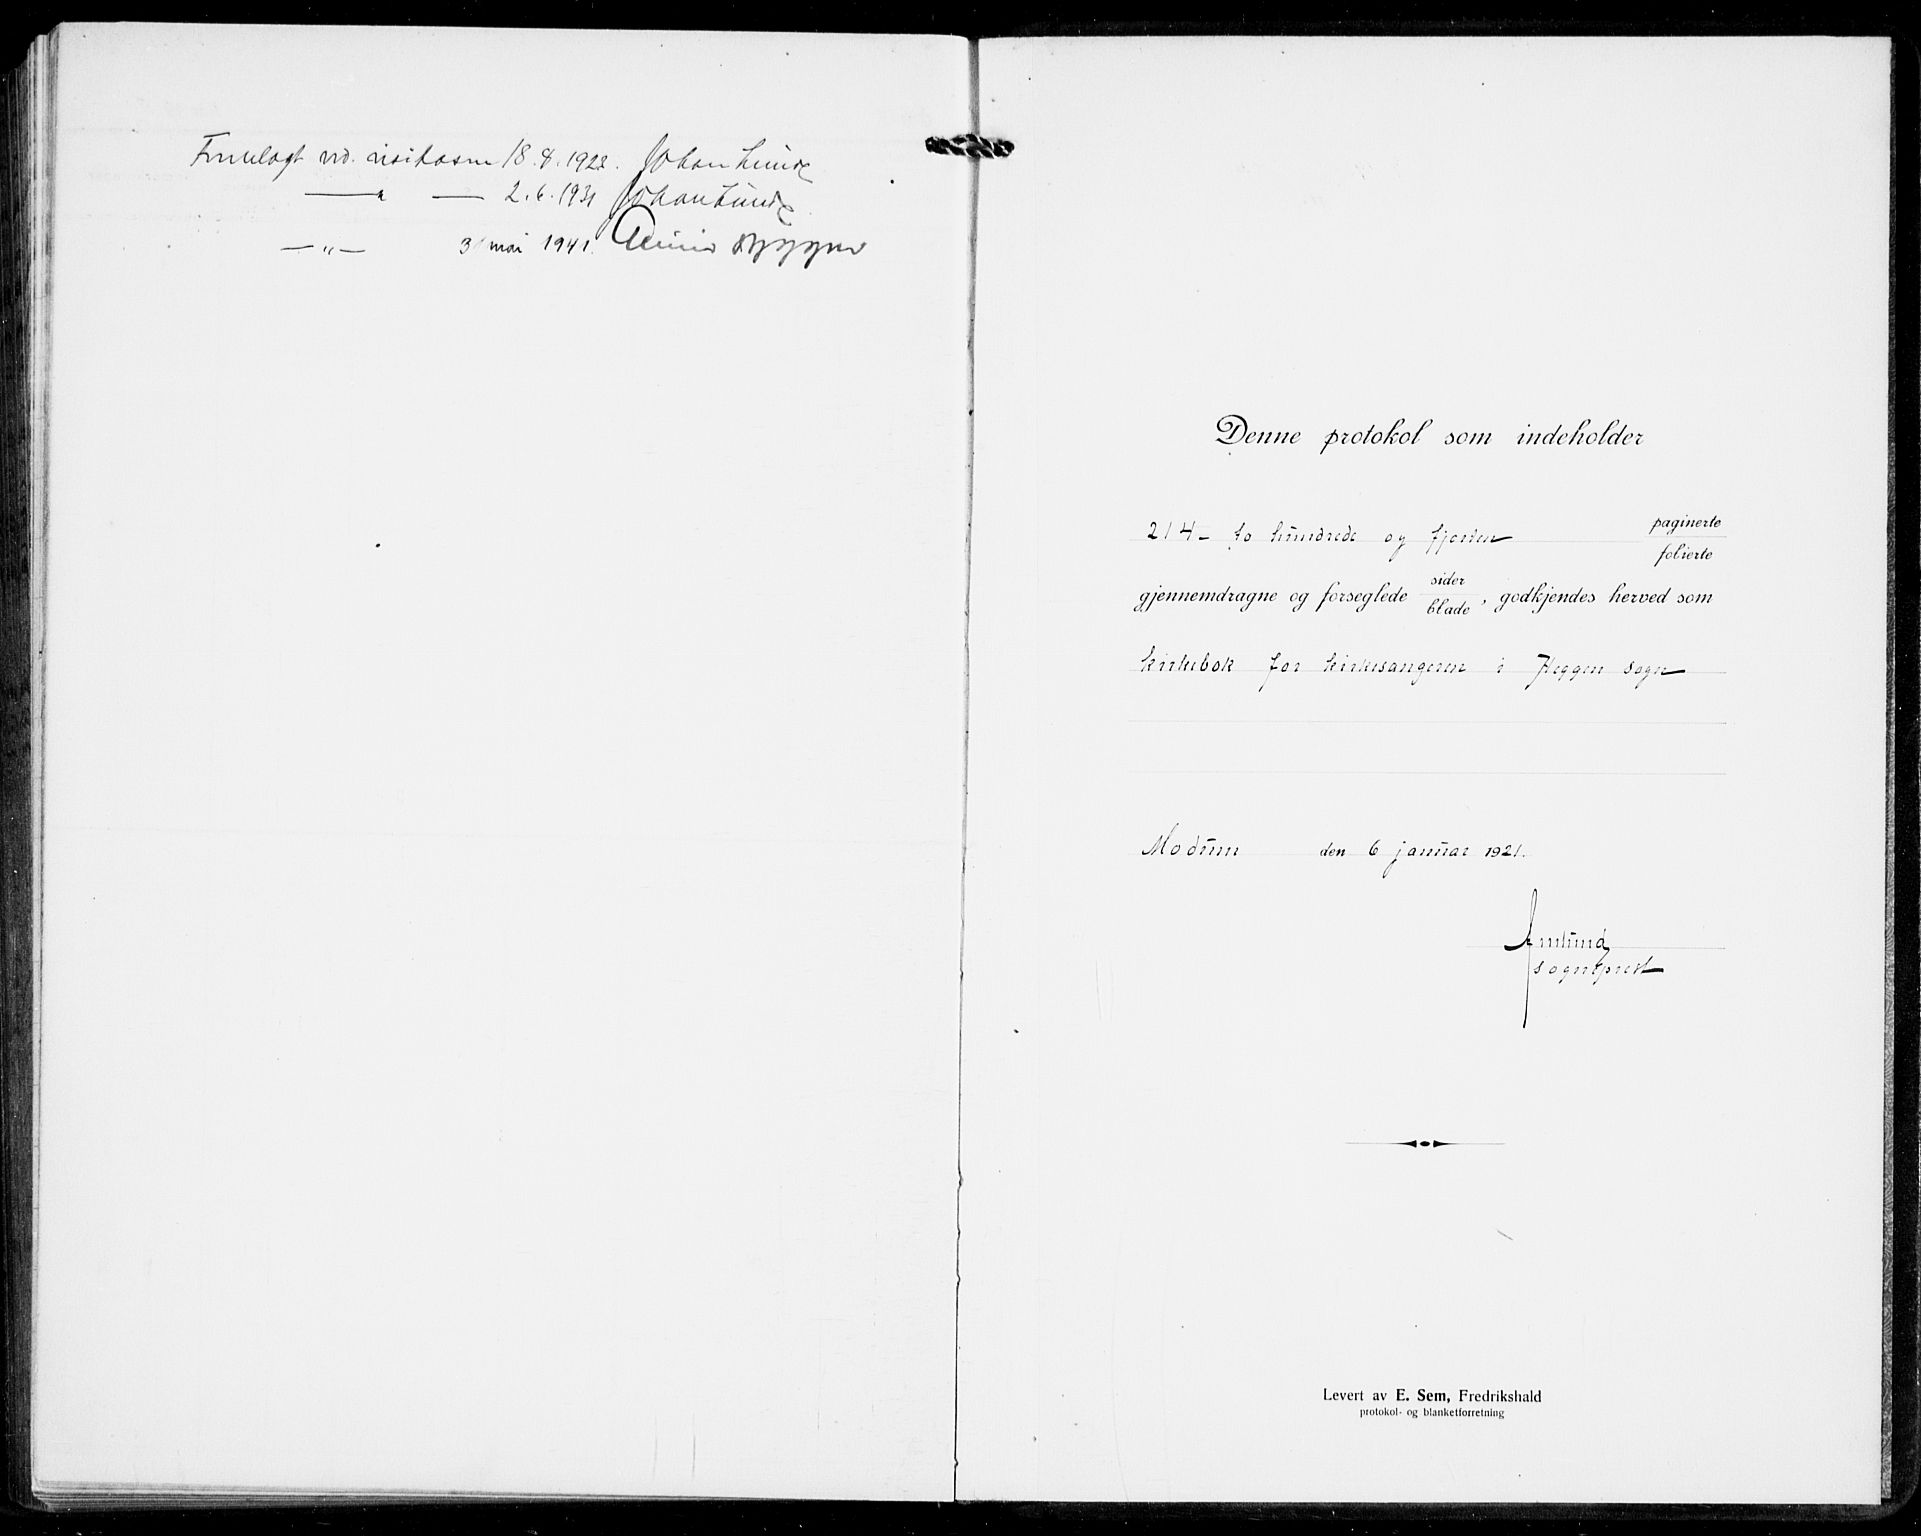 Fremlagt ved visitasen 18.8.1928. Johan Lunde
— " — 2.6.1931 Johan Lunde
— " — 3 mai 1941.
Denne protokol som indeholder
214 – to hundrede og fjorten paginerte
folierte
gjennemdragne og forseglede sider
blade, godkjendes herved som
kirkebok for kirkesangeren i Heggen sogn
Modum den 6 januar 1921.
Amlund
sogneprest
Levert av E. Sem, Fredrikshald
protokol- og blanketforretning